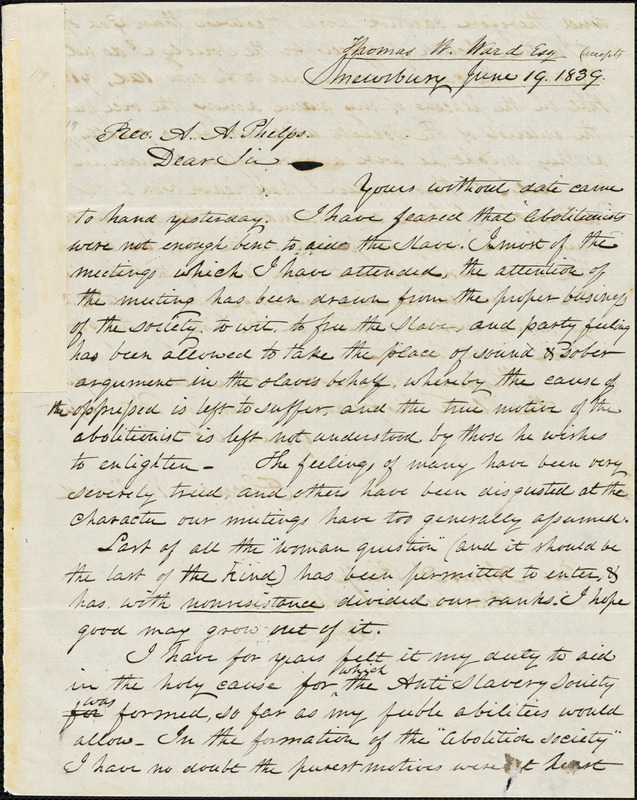 Thomas W. Ward Esq (accepts
Shrewsbury June 19. 1839.
Rev. A. A. Phelps.
Dear Sir
Yours without date came
to hand yesterday. I have feared that "abolitionists
were not enough bent to aid the slave. In most of the
meetings which I have attended, the attention of
the meeting has been drawn from the proper business
of the society, to wit, to free the slave, and party feeling
has been allowed to take the place of sound & sober
argument in the slaves behalf, whereby the cause of
the oppressed is left to suffer and the true motive of the
abolitionist is left not understood by those he wishes
to enlighten – The feelings of many have been very
severely tried and others have been disgusted at the
character our meetings have too generally assumed.
Last of all the "woman question" (and it should be
the last of the kind) has been permitted to enter, &
has with nonresistance divided our ranks. I hope
good may grow out of it.
I have for years felt it my duty to aid
in the holy cause for which the Anti Slavery Society
was formed, so far as my feeble abilities would
allow – In the formation of the "abolition society"
I have no doubt the purest motives were at heart